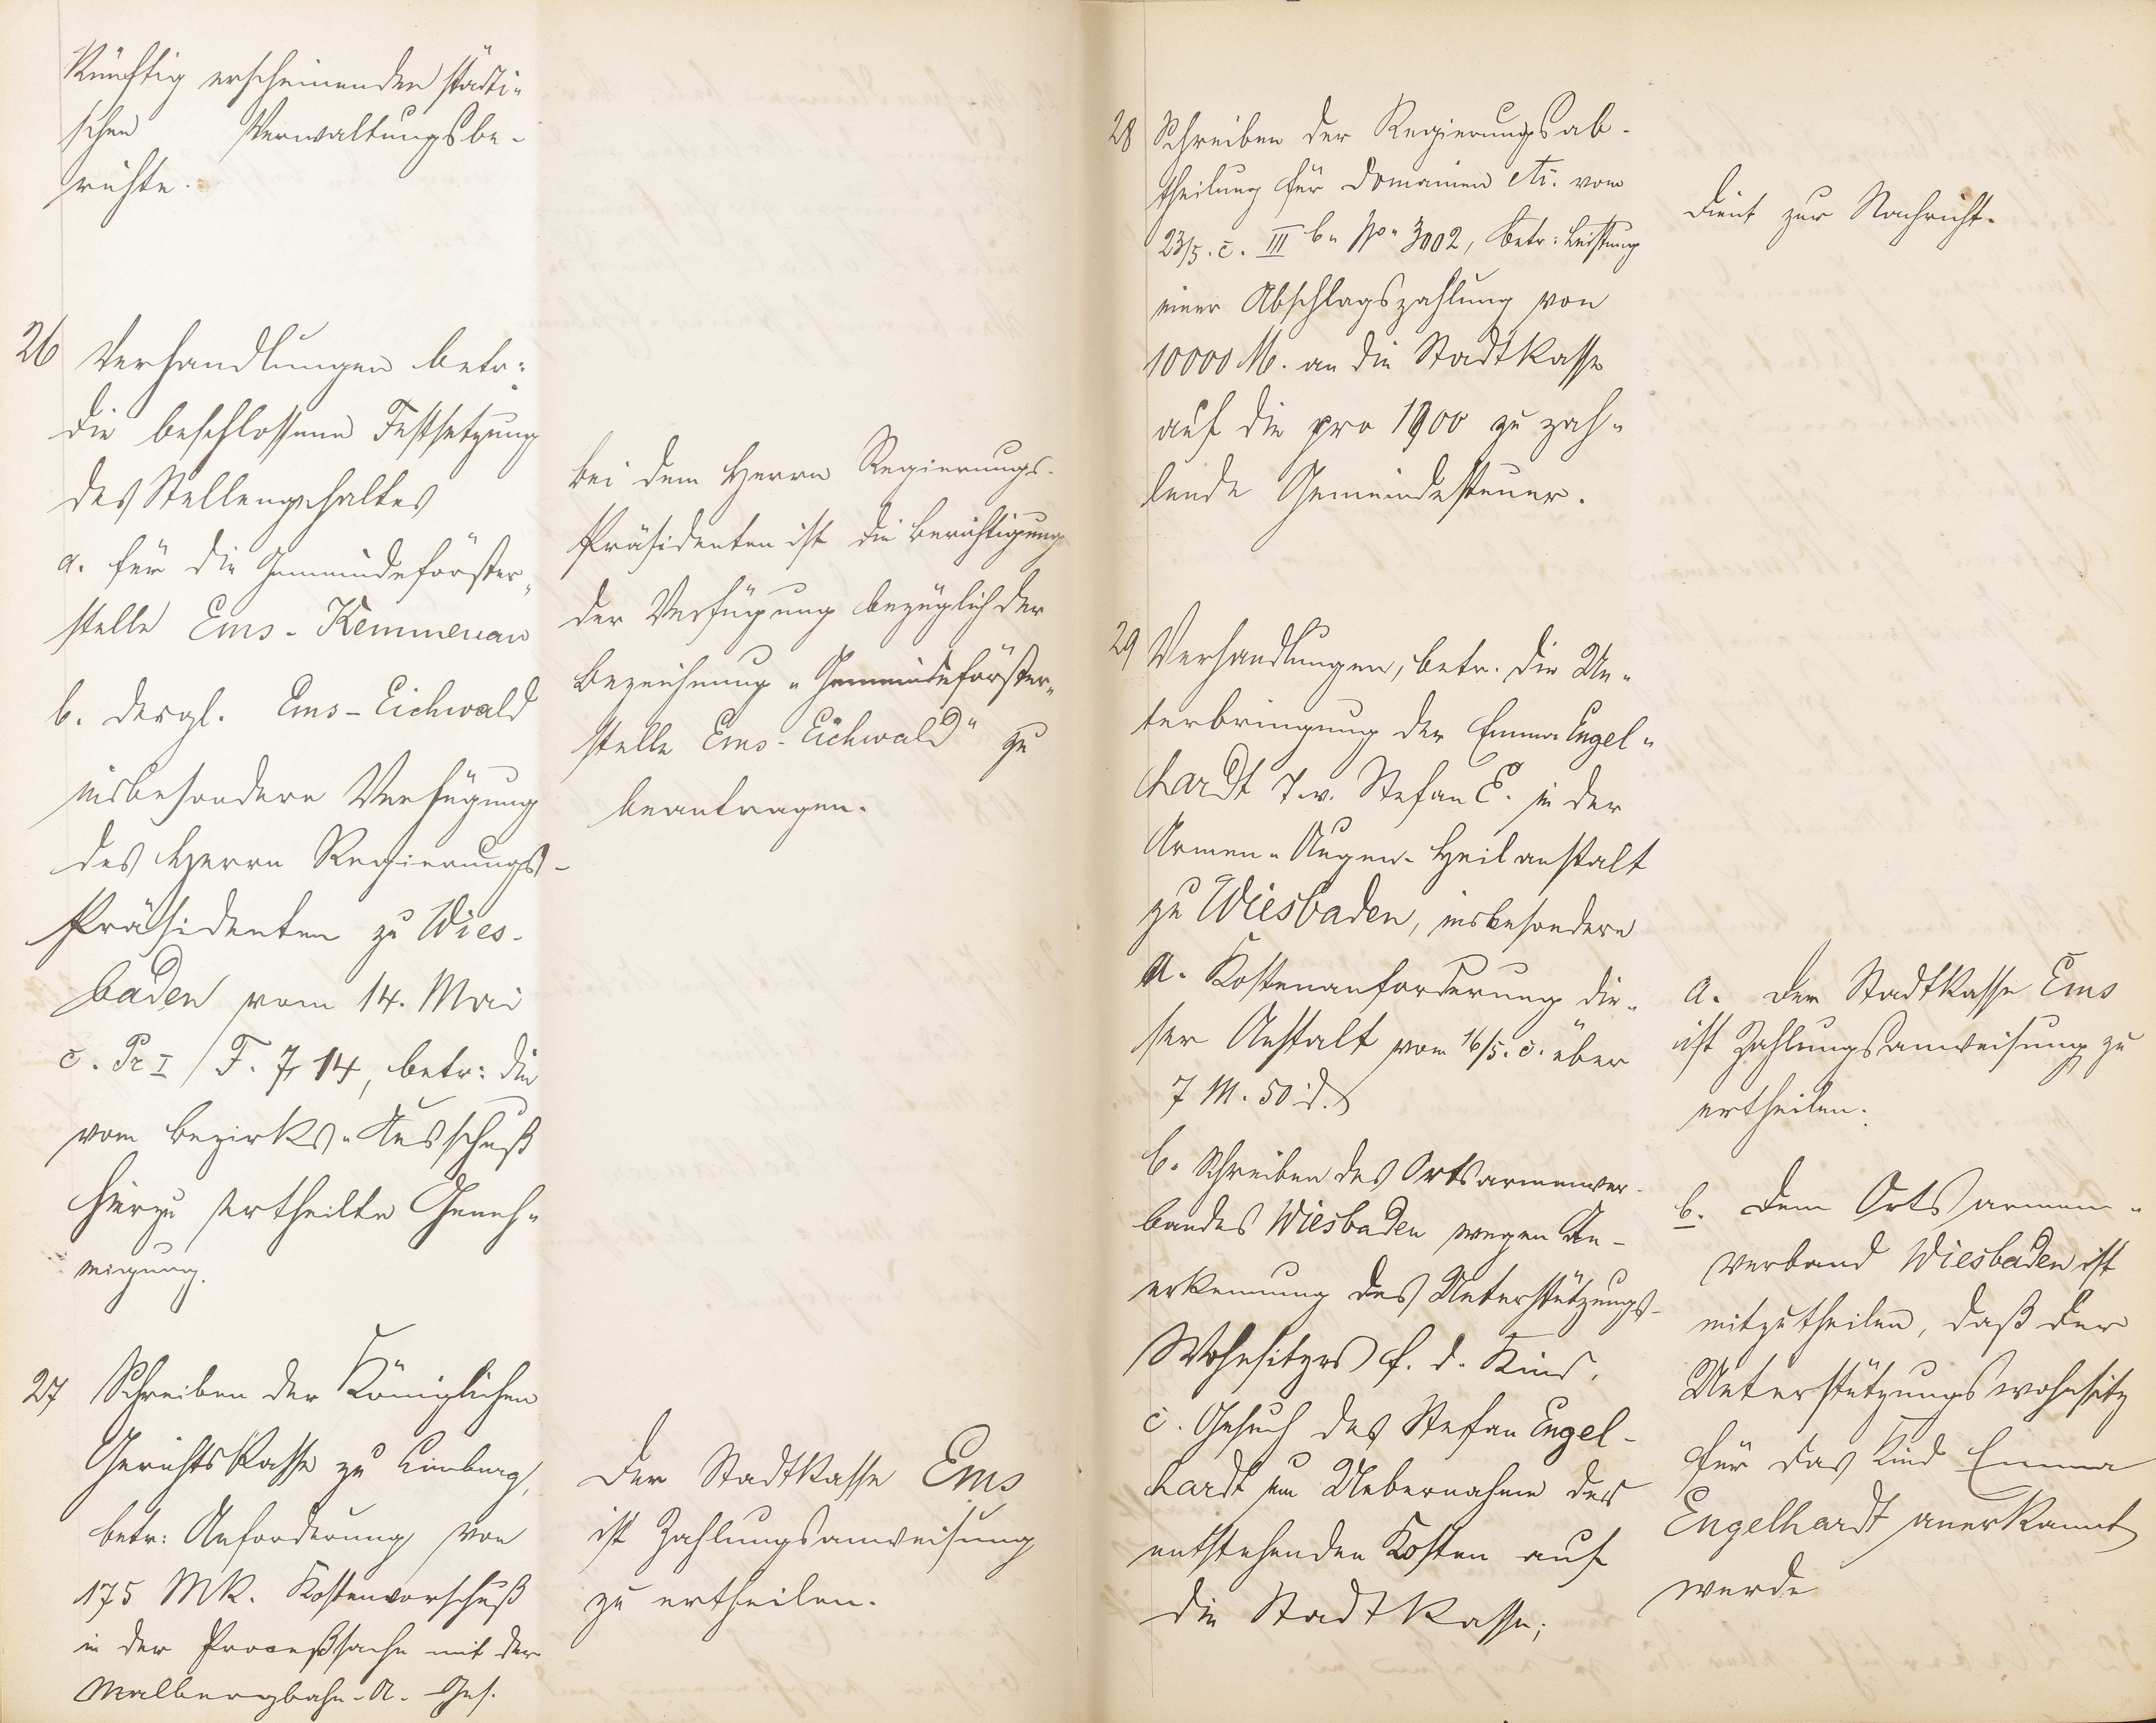 künftig erscheinenden städti-
schen Verwaltungsbe-
richte.
26 Verhandlungen betr:
die beschlossene Festsetzung
des Stellengehaltes
a. für die Gemeindeförster-
stelle Ems-Kemmenau
b. desgl. Ems-Eichwald
insbesondere Verfügung
des Herrn Regierungs-
Präsidenten zu Wies-
baden vom 14. Mai
c. Pr I / F. 714, betr: die
vom Bezirks-Ausschuß
hierzu ertheilte Geneh-
migung.
Bei dem Herrn Regierungs-
Präsidenten ist die Berichtigung
der Verfügung bezüglich der
Bezeichnung "Gemeindeförster-
stelle Ems-Eichwald" zu
beantragen.
27 Schreiben der Königlichen
Gerichtskasse zu Limburg,
betr: Anforderung von
175 Mk. Kostenvorschuß
in der Proceßsache mit der
Malbergbahn-A.-Ges.
Der Stadtkasse Ems
ist Zahlungsanweisung
zu ertheilen.
28 Schreiben der Regierungsab-
theilung für Domainen etc. vom
23/5. c. III b. No 3002, betr: Leistung
einer Abschlagszahlung von
10000 M. an die Stadtkasse
auf die pro 1900 zu zah-
lende Gemeindesteuer.
Dient zur Nachricht.
29 Verhandlungen, betr. die Un-
terbringung der Emma Engel-
hardt T. v. Stefan E. in der
Armen-Augen-Heilanstalt
zu Wiesbaden, insbesondere
a. Kostenanforderung die-
ser Anstalt vom 16/5. c. über
7 M. 50 d.
b. Schreiben des Ortsarmenver-
bandes Wiesbaden wegen An-
erkennung des Unterstützungs-
Wohnsitzes f. d. Kind.
c. Gesuch des Stefan Engel-
hardt um Uebernahme der
entstehenden Kosten auf
die Stadtkasse;
a. Der Stadtkasse Ems
ist Zahlungsanweisung zu
ertheilen.
b. Dem Ortsarmen-
verband Wiesbaden ist
mitzutheilen, daß der
Unterstützungswohnsitz
für das Kind Emma
Engelhardt anerkannt
werde